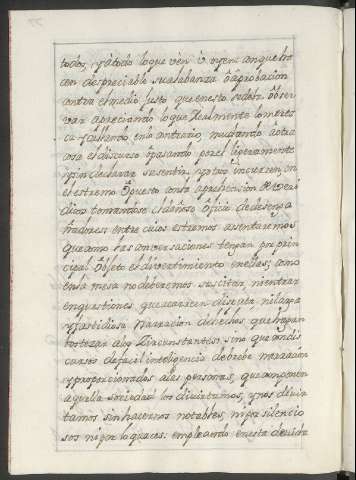 todos, y a todo lo que ven ù oyen: con que ha
cen despreciable su alabanza, ò aprobacion
contra el medio justo que en esto se debe obser
var apreciando lo que realmente lo merez
ca, y callando en lo contrario, mudando à otra
cosa el discurso, ò pasando por el ligeramente
y sin declarar su sentir, y otros incurren, en
el estremo opuesto con la
dicos tomandose el dañoso oficio de desenga
ñadores: entre cuios estremos asentaremos
que como las conversaciones tengan por prin
cipal objeto el divertimiento en ellas; como
en la mesa no deberemos suscitar, ni entrar
en questiones que acarreen disputa ni larga
y fastidiosa narracion de hechos, que hayan
por circunstantes; sino que con dis
cursos de facil inteligencia de breve narracion
y proporcionados a las personas, que componen
aquella sociedad los divirtamos, y nos divir
tamos sin hacernos notables, ni por silencio
sos ni por loquaces: empleando en esta